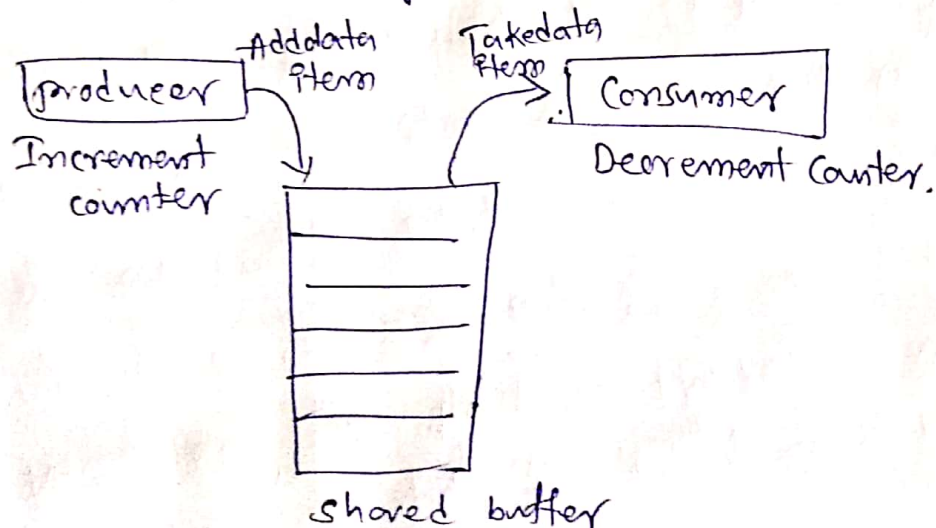 Adddata
item
Takedata
item
producer
Consumer
Increment
counter
Decrement Counter.
shared buffer